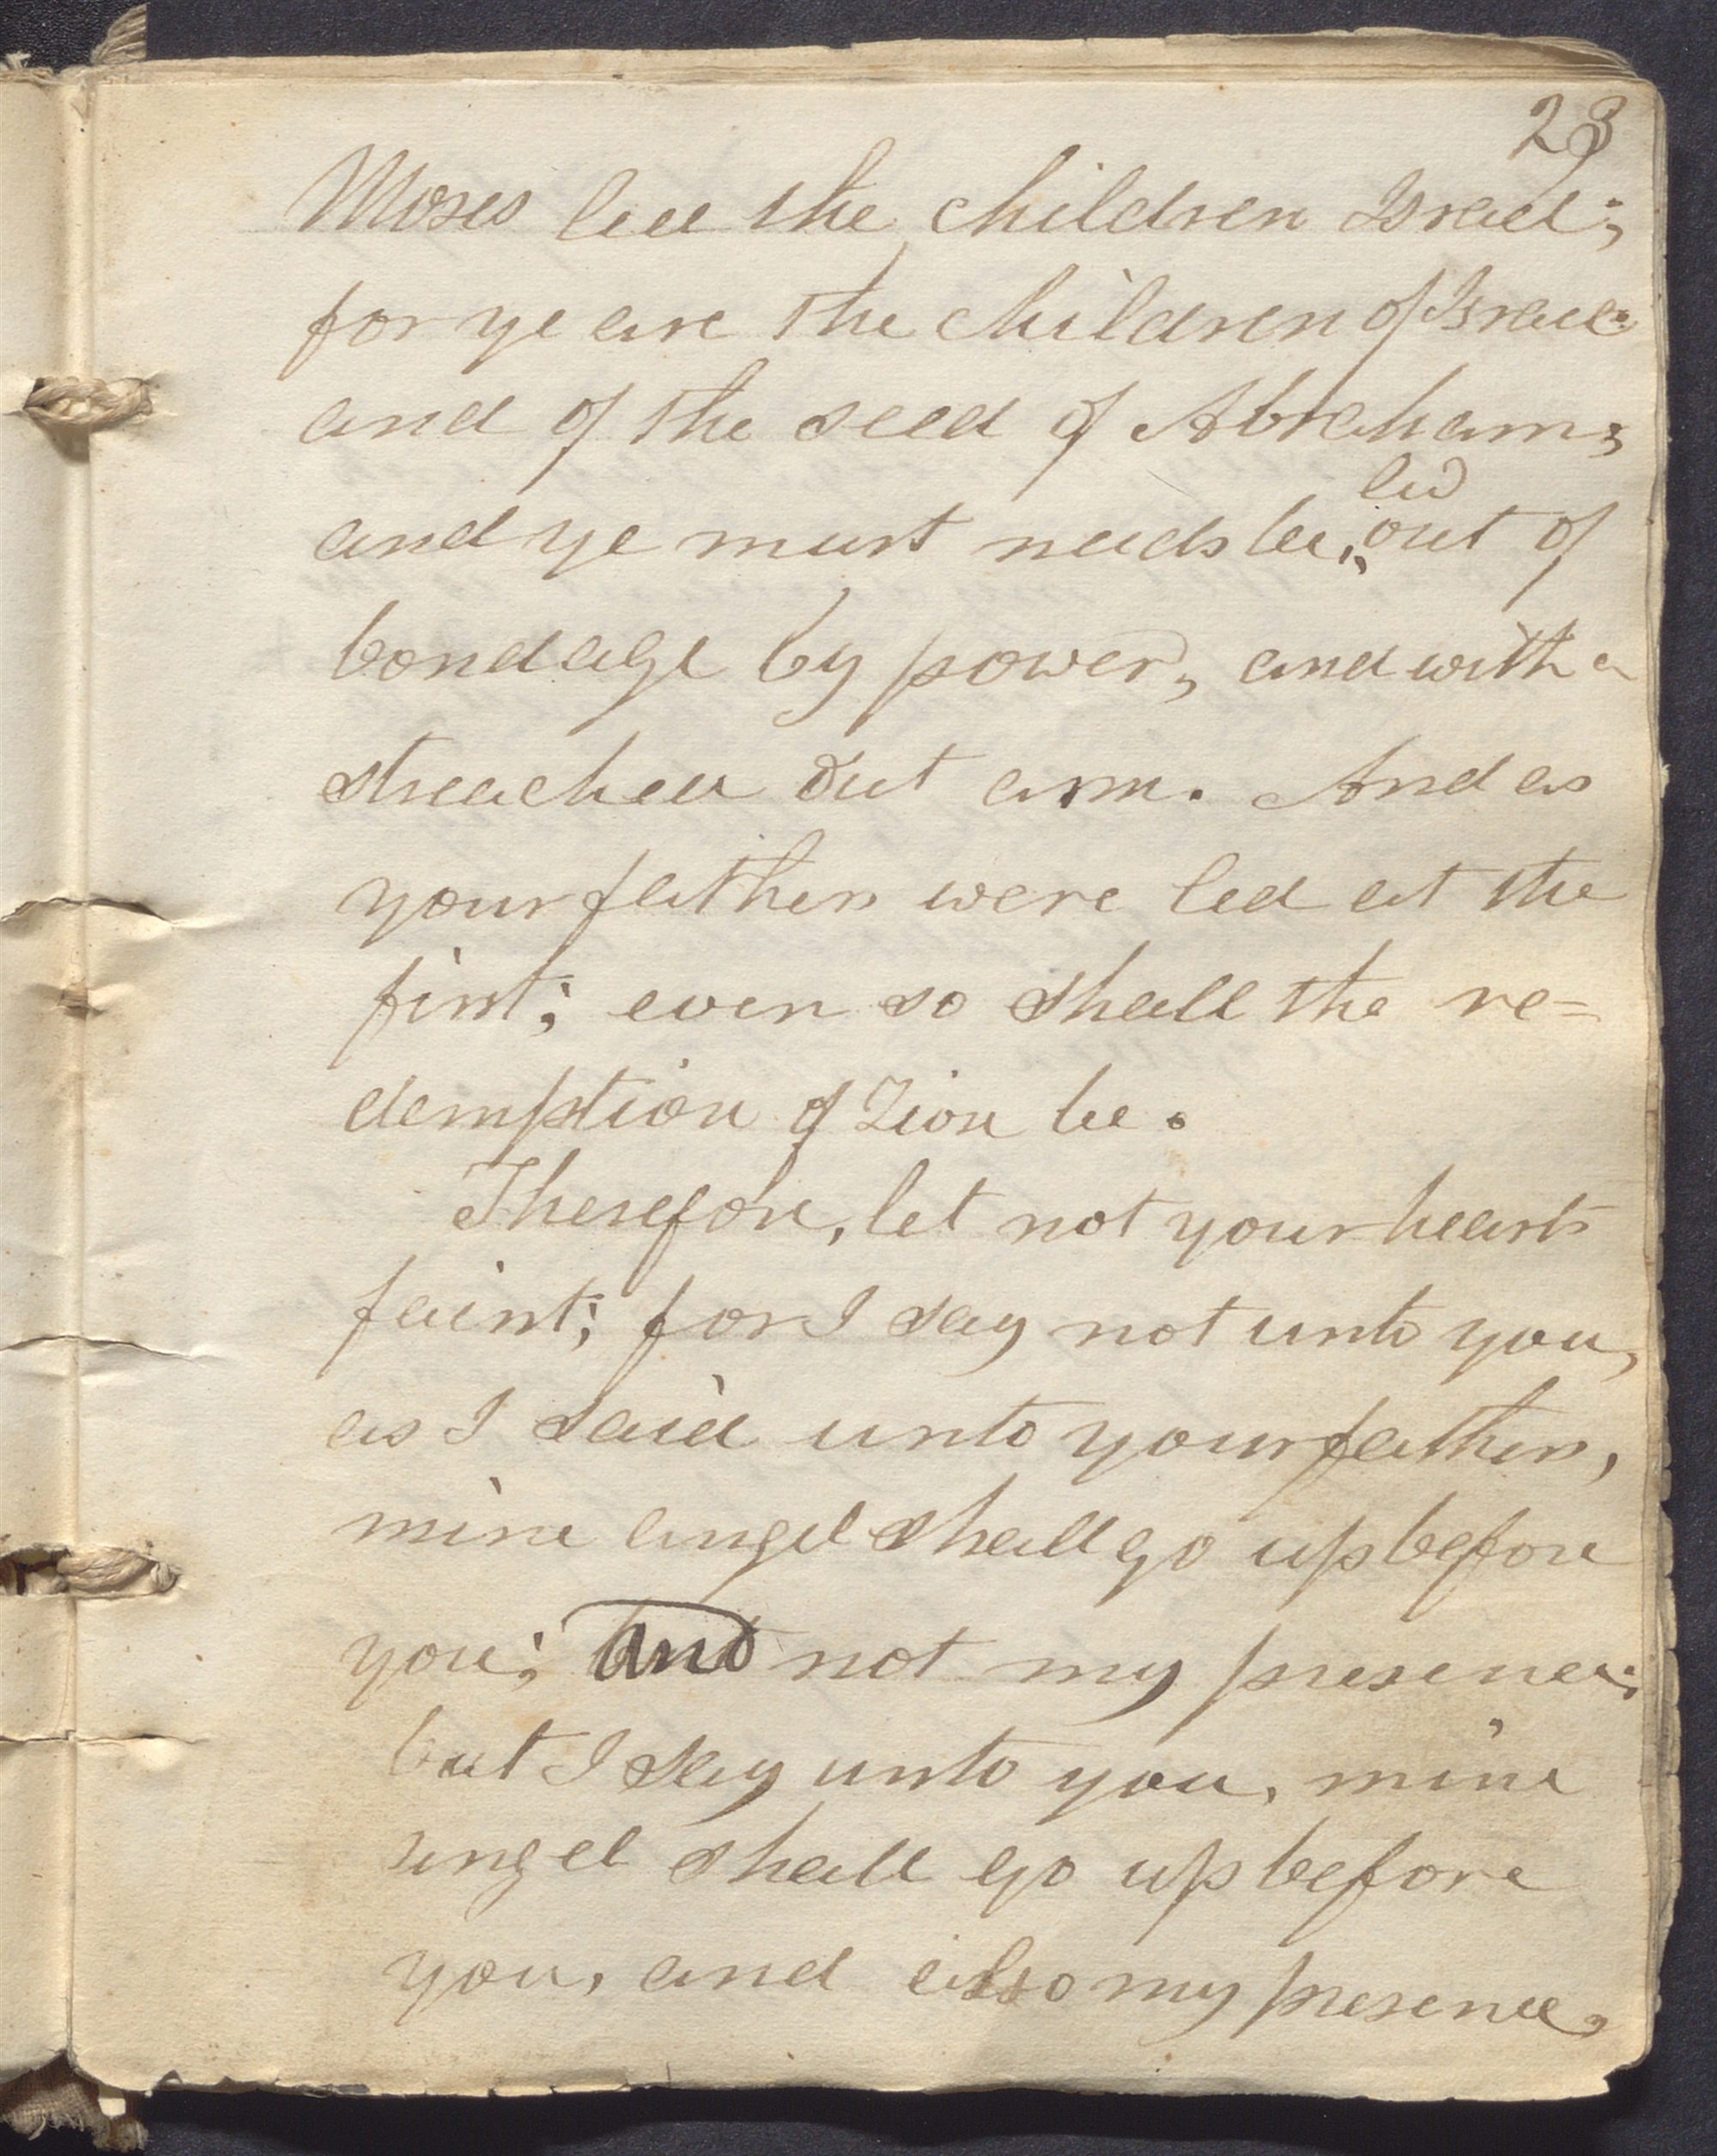 23
Moses led the children Israel;
for ye are the children of Israel:
and of the seed of Abraham;
led
and ye must needs be, out of
bondage by power, and with a
streached out arm. And as
your fathers were led at the
first; even so shall the re=
demption of Zion be.
Therefore, let not your hearts
faint; for I say not unto you,
as I said unto your fathers,
mine angel shall go up before
you; and not my presence;
but I say unto you, mine
angel shall go up before
you, and also my presence,